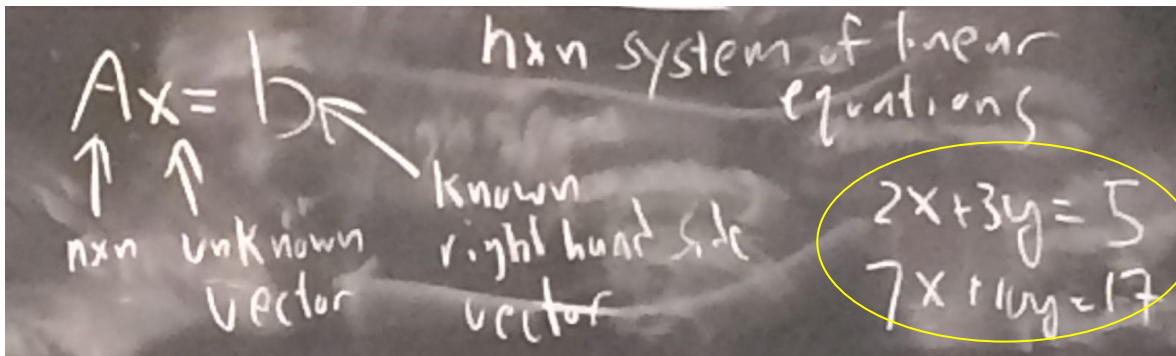 nxn system of linear
equations
Ax = b
nxn
unknown
vector
known
right hand side
vector
2x+3y = 5
7x+10y=17